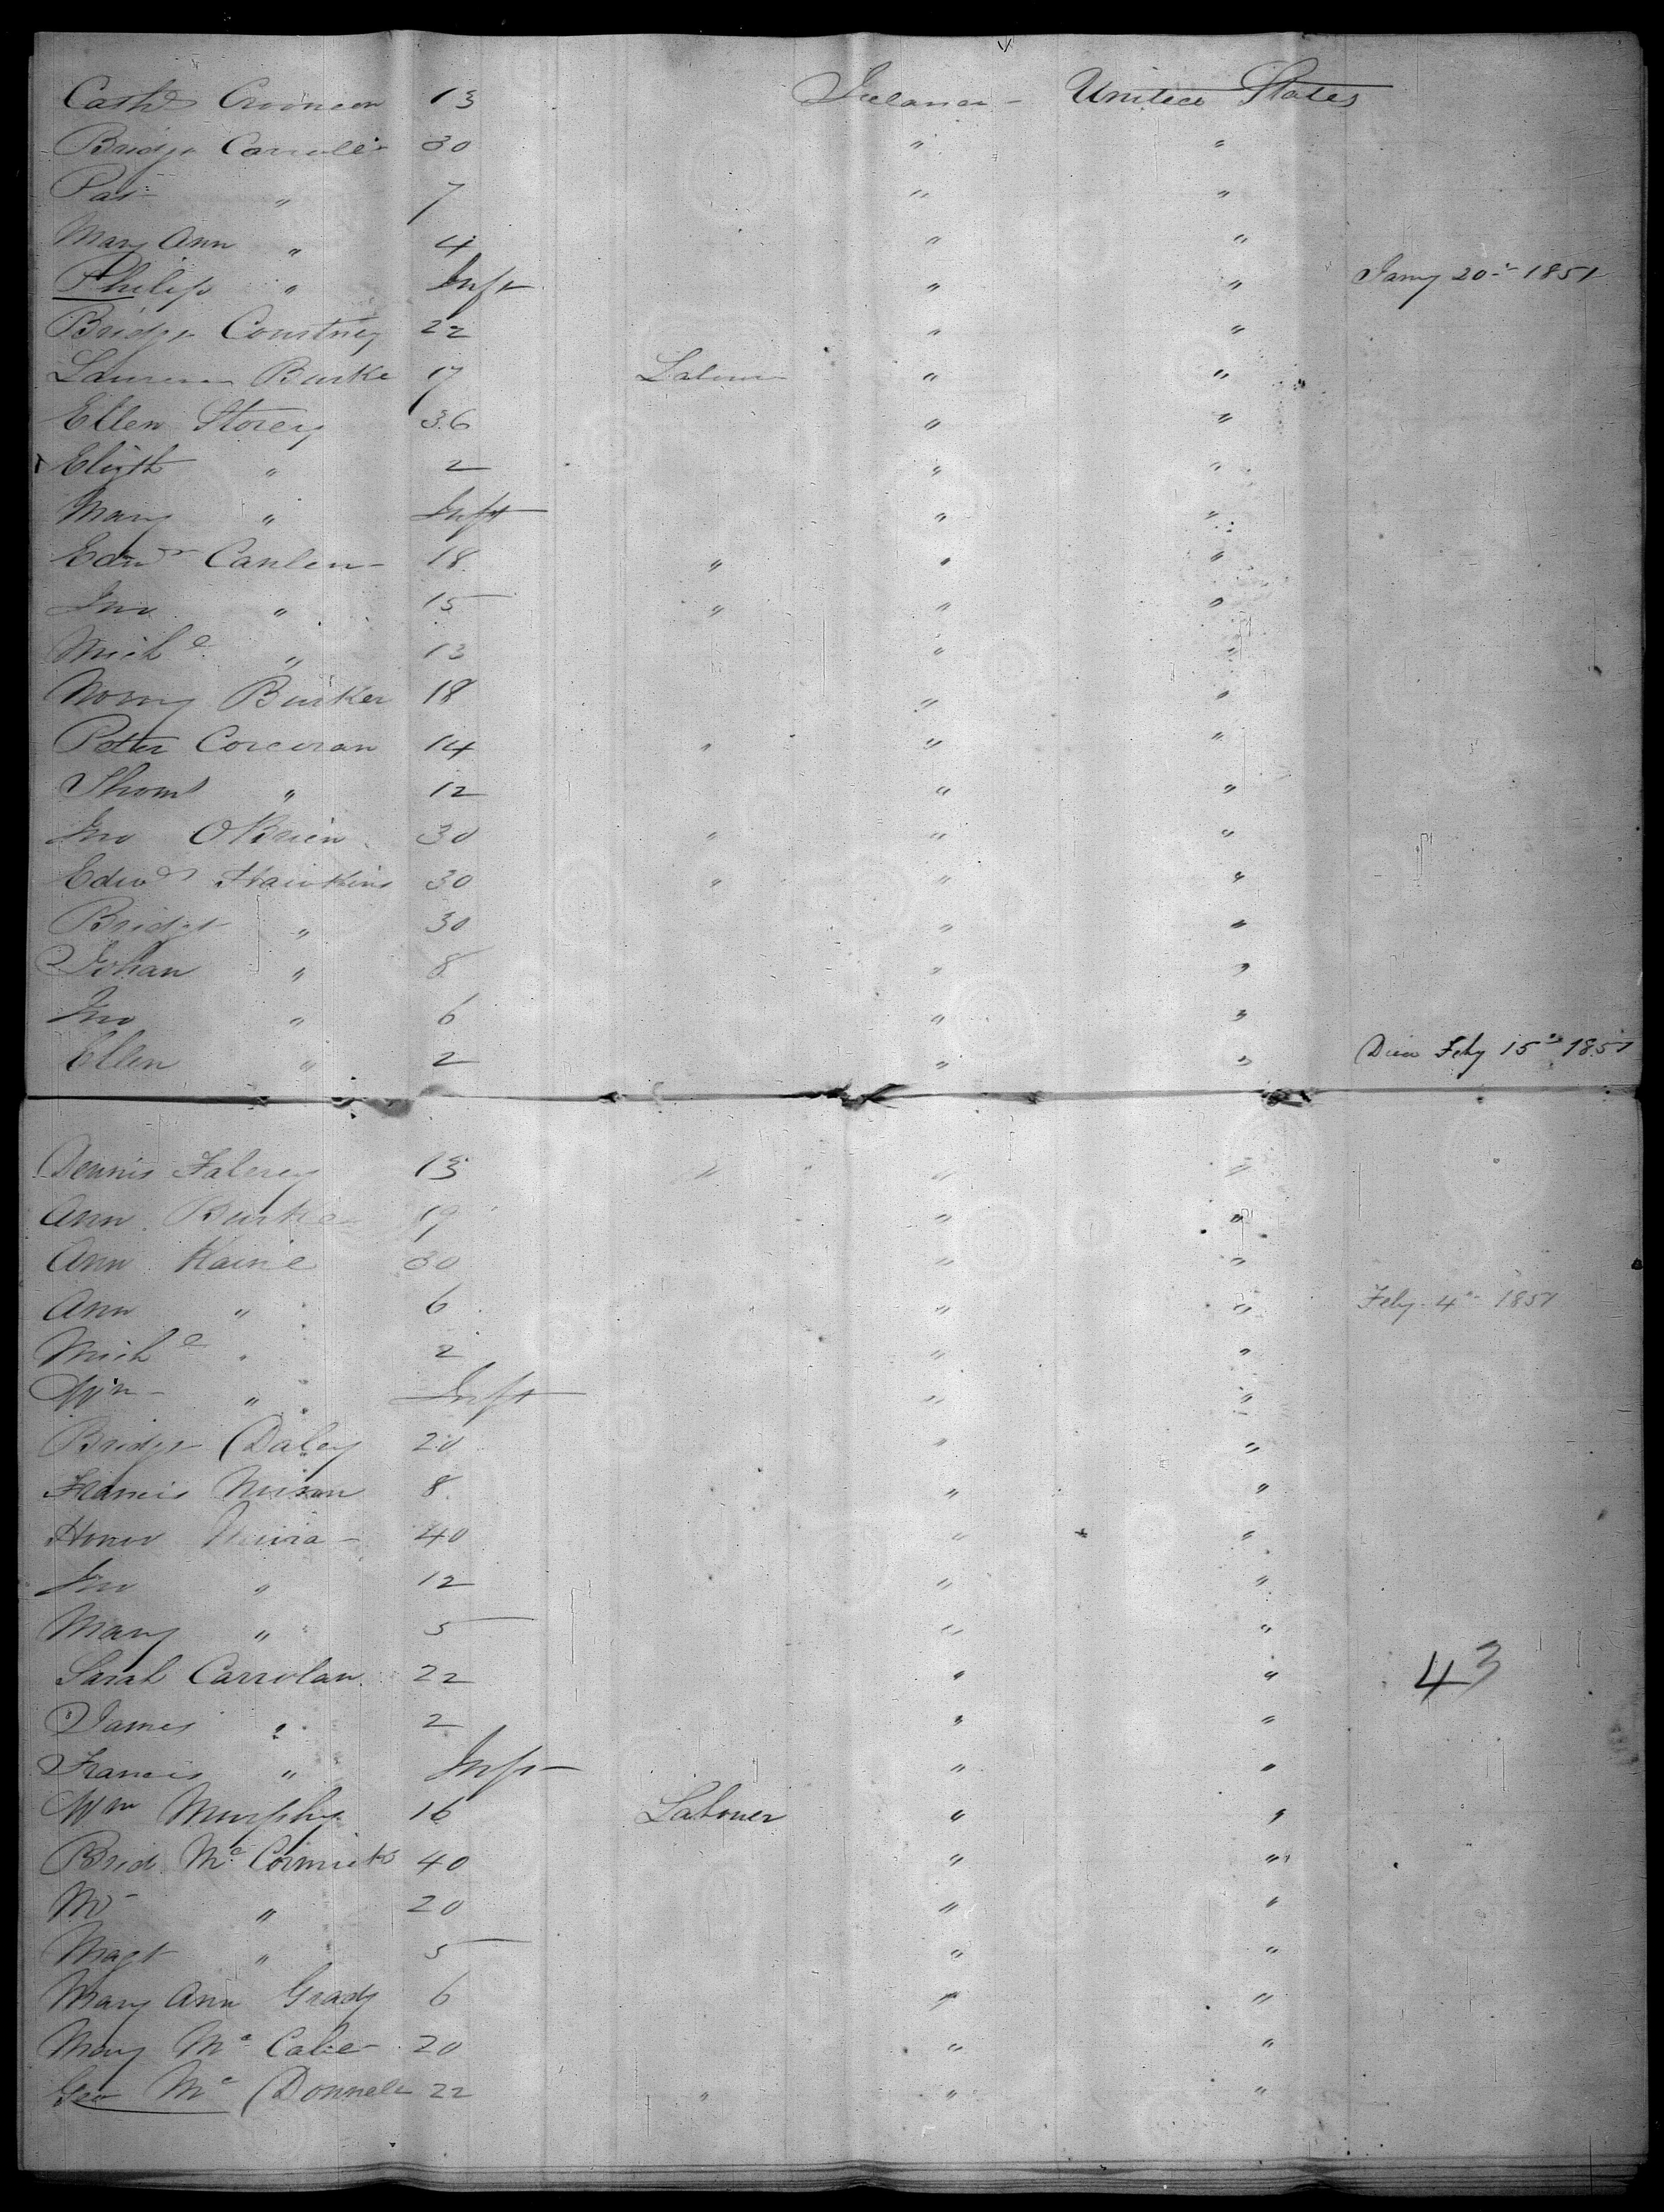 Cath 13 Ireland - United States
Bridgt 30 " "
Pat " 7 " "
Mary Ann " 4 " "
Philip " Inft " " Jany 20th 1851
Bridgt Courtney 22 " "
Burke 17 Labourer " "
Ellen Storey 36 " "
Elizth " 2 " "
Mary " Inft " "
Edwd Canlen 18 " " "
Jno " 15 " " "
Michl " 13 " "
Norry Burker 18 " "
Peter Corcoran 14 " " "
Thoms " 12 " "
Jno OBrien 30 " " "
Edwd Hawkins 30 " " "
Bridgt " 30 " "
Johan " 8 " "
Jno " 6 " "
Ellen " 2 " " Died Feby 15th 1851
Dennis Falvey 13 " " "
Ann Burke 19 " "
Ann Kaine 30 " "
Ann " 6 " " Feby 4th 1851
Michl " 2 " "
Wm " Inft " "
Bridgt Daley 20 " "
Francis 8 " "
Honor 40 " "
Jno " 12 " "
Mary " 5 " "
Sarah Carrolan 22 " " 43
James " 2 " "
Francis " Inft " "
Wm Murphy 16 Labourer " "
Brid Mc Cormick 40 " "
" 20 " "
Magt " 5 " "
Mary Ann Grady 6 " "
Mary Mc Cabe 20 " "
Geo Mc Donnell 22 " " "